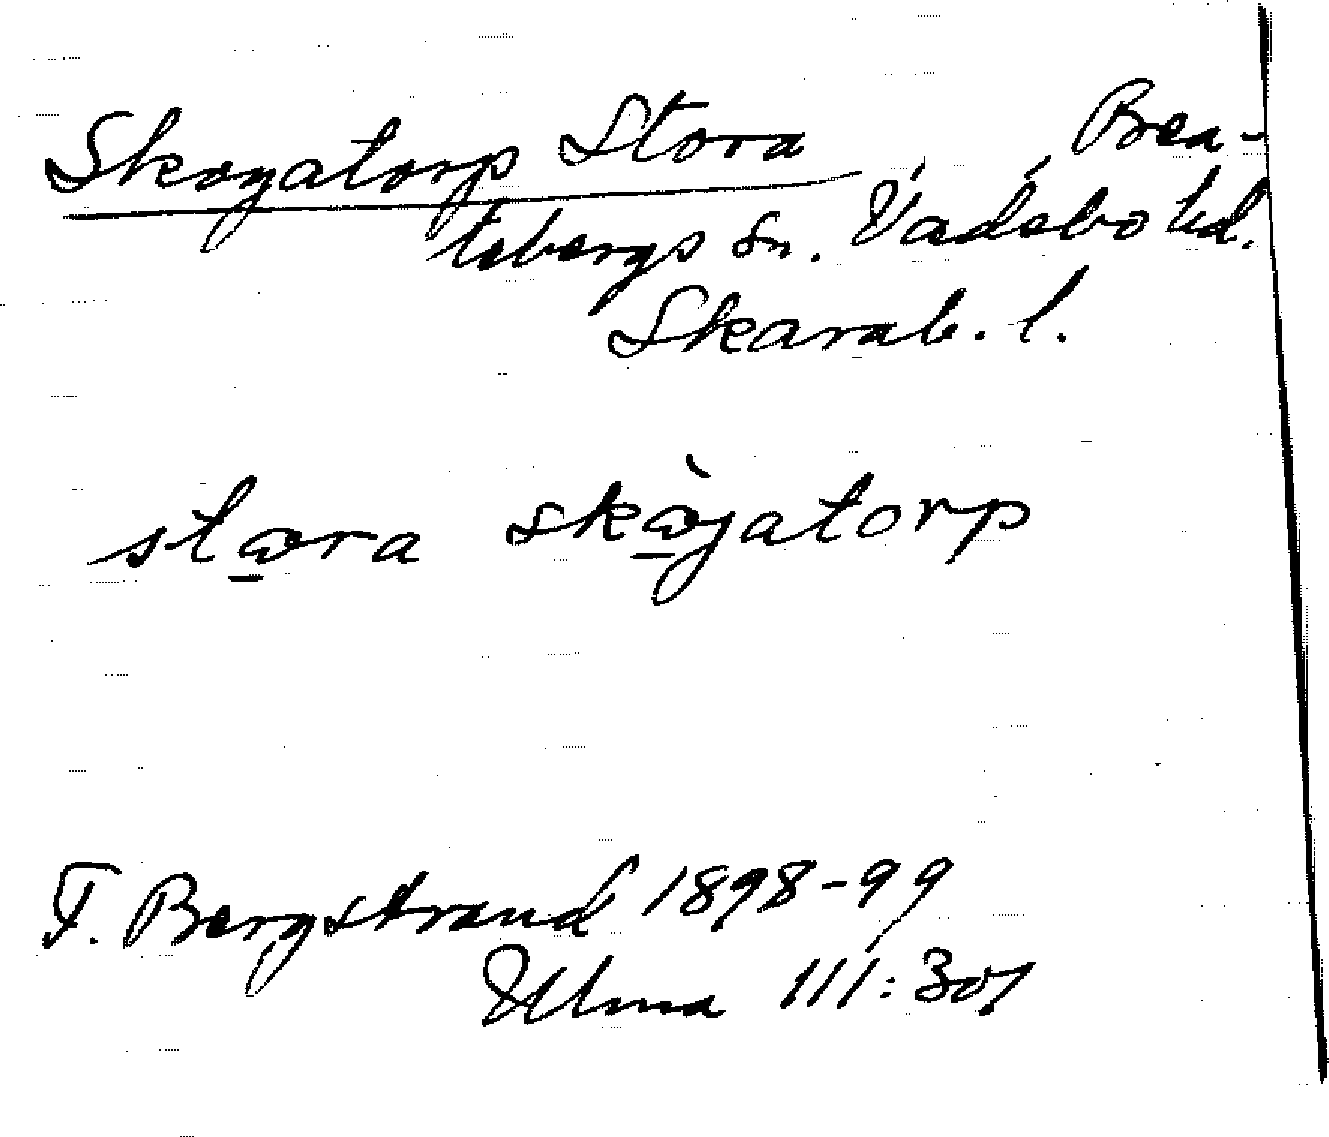 Skogatorp Stora Bea-
tebergs Sn. Vadsbo hd.
Skarab. l.
stⱺra skⱺ̀gatorp
F. Bergstrand 1898-99
Ulma 111:301